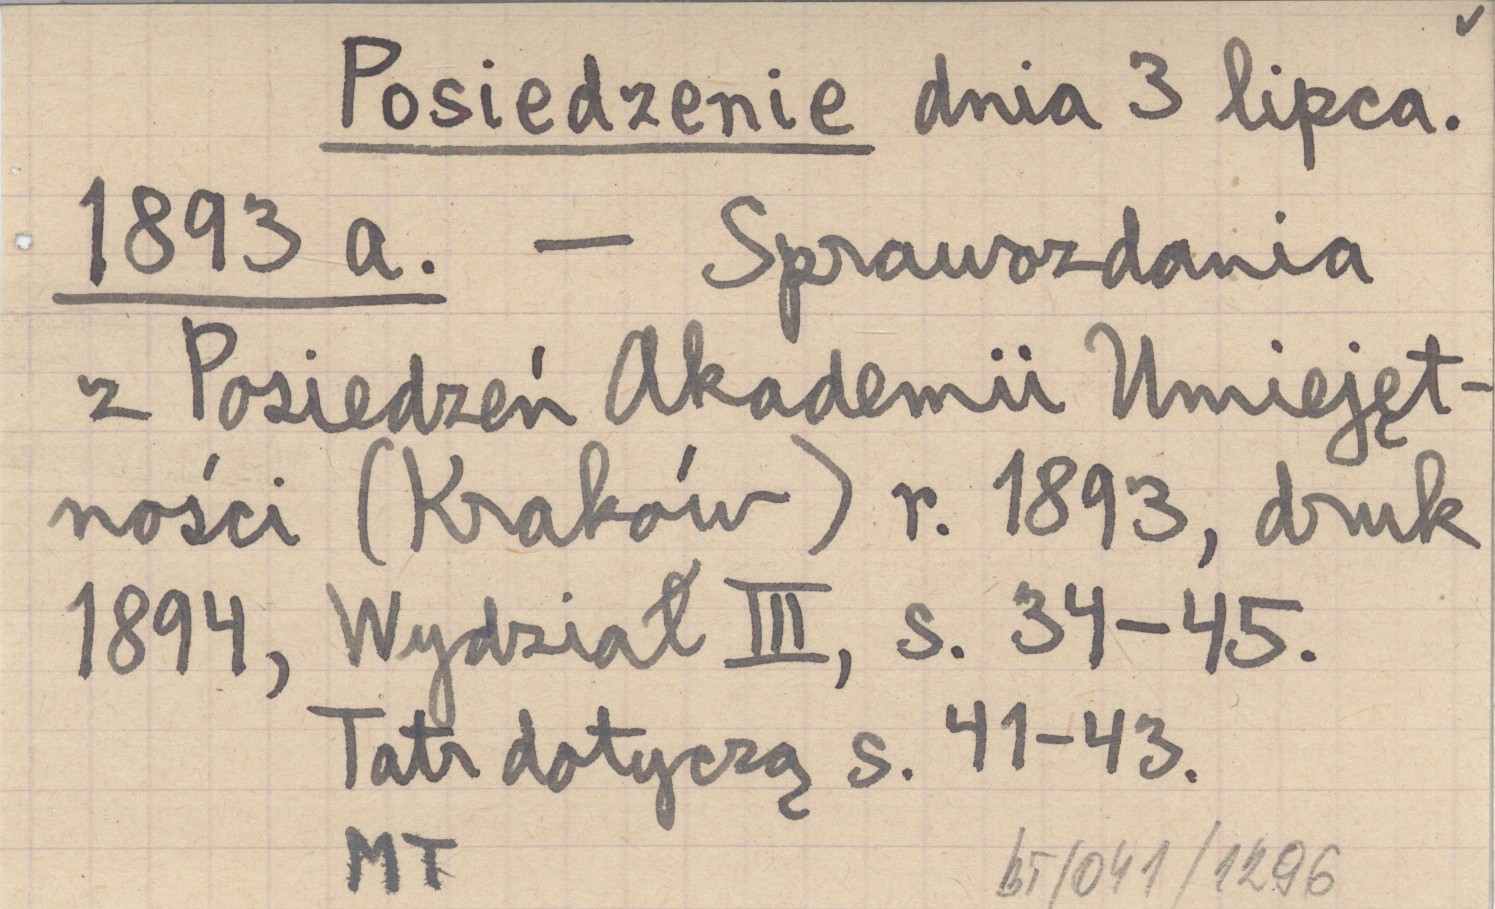 Posiedzenie dnia 3 lipca.
1893 a. — Sprawozdania
z Posiedzeń Akademii Umiejęt-
ności (Kraków) r. 1893, druk
1894, Wydział III, s. 34-45.
Tatr dotyczą s. 41-43.
MT
bT/041/1296